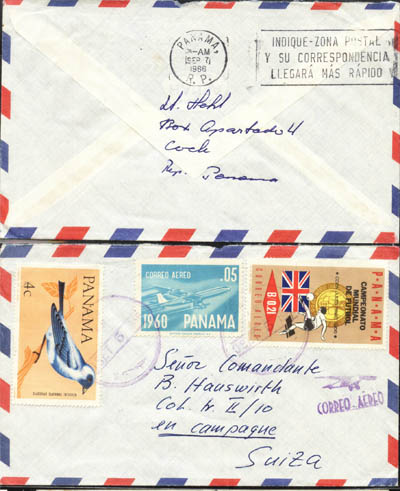 PANAMA,
-AM
SEP 7
1966
R. P.
INDIQUE-ZONA POSTAL
Y SU CORRESPONDENCIA
LLEGARÁ MÁS RÁPIDO
Box Apartado 4
Rep. Panama
PANAMA
4c
CORREO AEREO .05
1960 PANAMA
PANAMA
CAMPEONATO
MUNDIAL
DE FUTBOL
B/0.21
CORREO AEREO
Señor Comandante
B. Hauswirth
II/10
en campagne
Suiza
CORREO-AÉREO